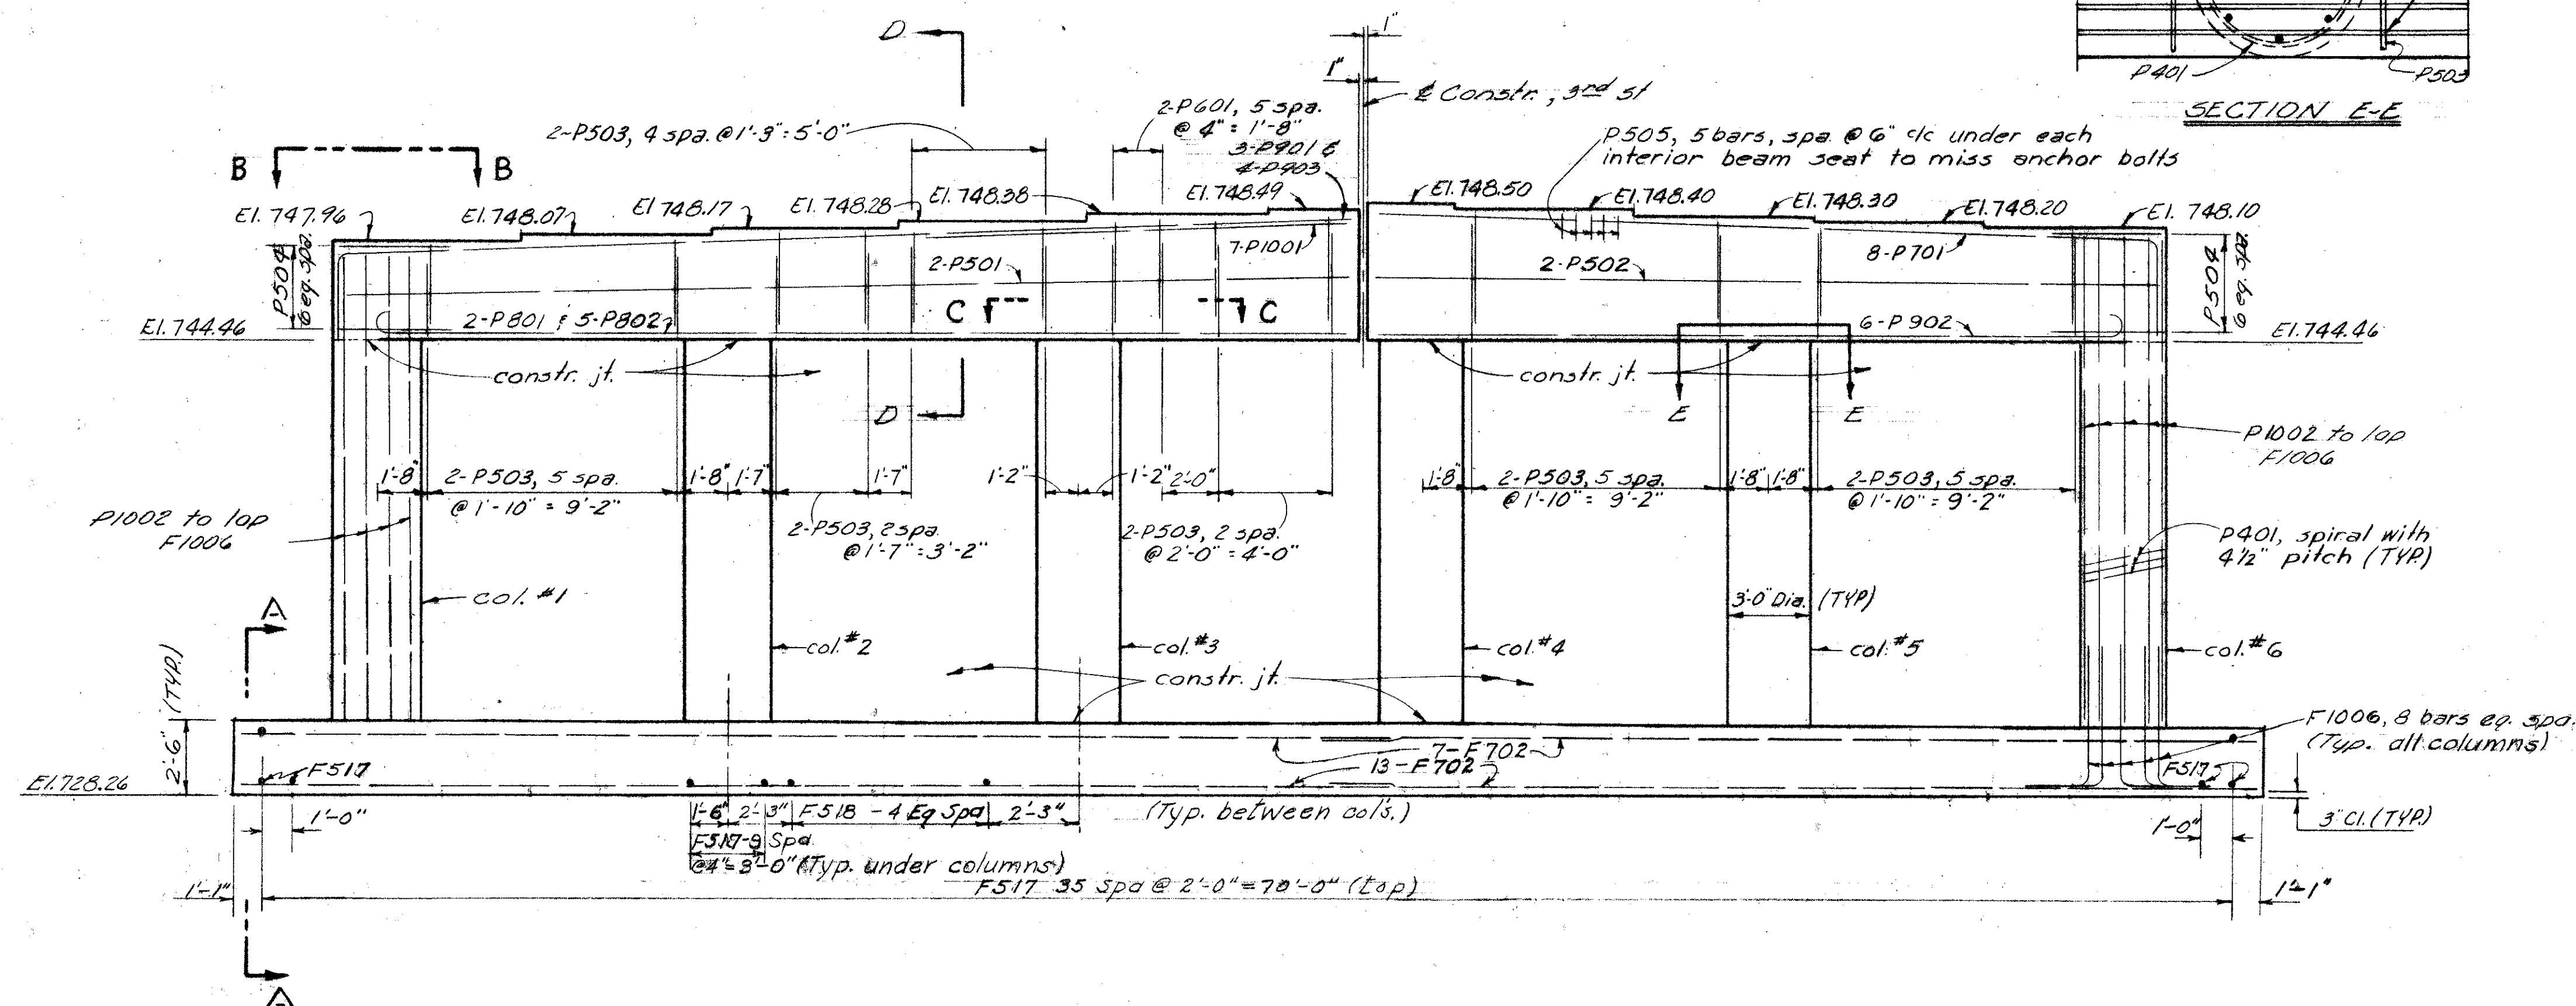 P401
P503
SECTION E-E
D
1"
1"
℄ Constr., 3rd St
2-P601, 5 spa.
@ 4" = 1'-8"
3-P901 &
4-P903
2-P503, 4 spa. @ 1'-3" = 5'-0"
P505, 5 bars, spa. @ 6" c/c under each
interior beam seat to miss anchor bolts
B
B
El. 747.96
El. 748.07
El 748.17
El. 748.28
El. 748.38
El. 748.49
El. 748.50
El. 748.40
El. 748.30
El. 748.20
El. 748.10
P504
6 eq. spa.
7-P1001
2-P501
2-P502
8-P701
P504
6 eq. spa.
C
C
2-P801 & 5-P802
6-P902
El. 744.46
El. 744.46
constr. jt.
constr. jt.
D
E
E
P1002 to lap
F1006
1'-8"
2-P503, 5 spa.
@ 1'-10" = 9'-2"
1'-8"
1'-7"
1'-7"
1'-2"
1'-2"
2'-0"
1'-8"
2-P503, 5 spa.
@ 1'-10" = 9'-2"
1'-8"
1'-8"
2-P503, 5 spa.
@ 1'-10" = 9'-2"
P1002 to lap
F1006
2-P503, 2 spa.
@ 1'-7" = 3'-2"
2-P503, 2 spa.
@ 2'-0" = 4'-0"
P401, spiral with
4½" pitch (TYP.)
A
col. #1
3'-0" Dia. (TYP)
col. #2
col. #3
col. #4
col. #5
col. #6
constr. jt.
2'-6" (TYP.)
F1006, 8 bars eq. spa.
(Typ. all columns)
7-F702
13-F702
F517
F517
El. 728.26
1'-0"
1'-6"
2'-3"
F518 - 4 Eq Spa
2'-3"
(Typ. between col's.)
1'-0"
3" Cl. (TYP.)
F517-9 Spa
@4"=3'-0" (Typ. under columns)
1'-1"
F517 35 Spa @ 2'-0" = 70'-0" (top)
1'-1"
A